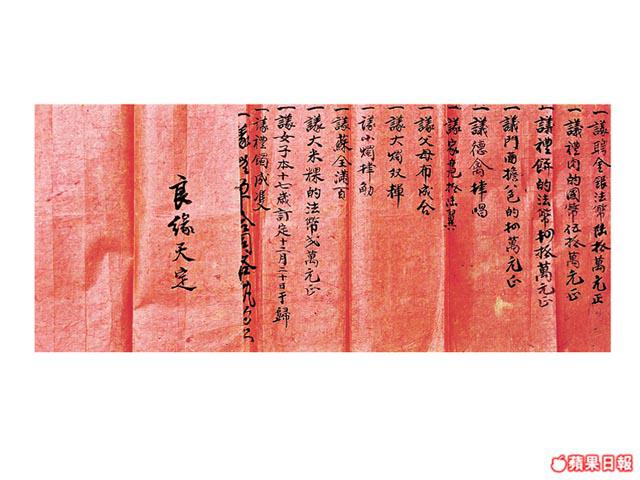 一議聘金銀法幣陆拾萬元正
一議禮肉的國幣伍拾萬元正
一議禮餅的法幣拾萬元正
一議門面擔八色的萬元正
一議德禽擇唱
一議家鳧拾翼
一議父母布成合
一議大燭双摙
一議小燭摙觔
一議蘇全满百
一議大米粿的法幣弍萬元正
一議女子本十七歲訂定十二月二十日于歸
一議禮燭成雙
一議
良缘天定
蘋果日報